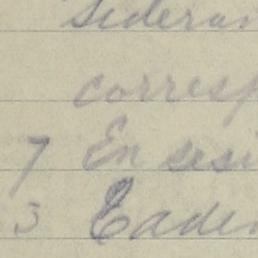 sideran
corresp
7 En sesi
3 Cader